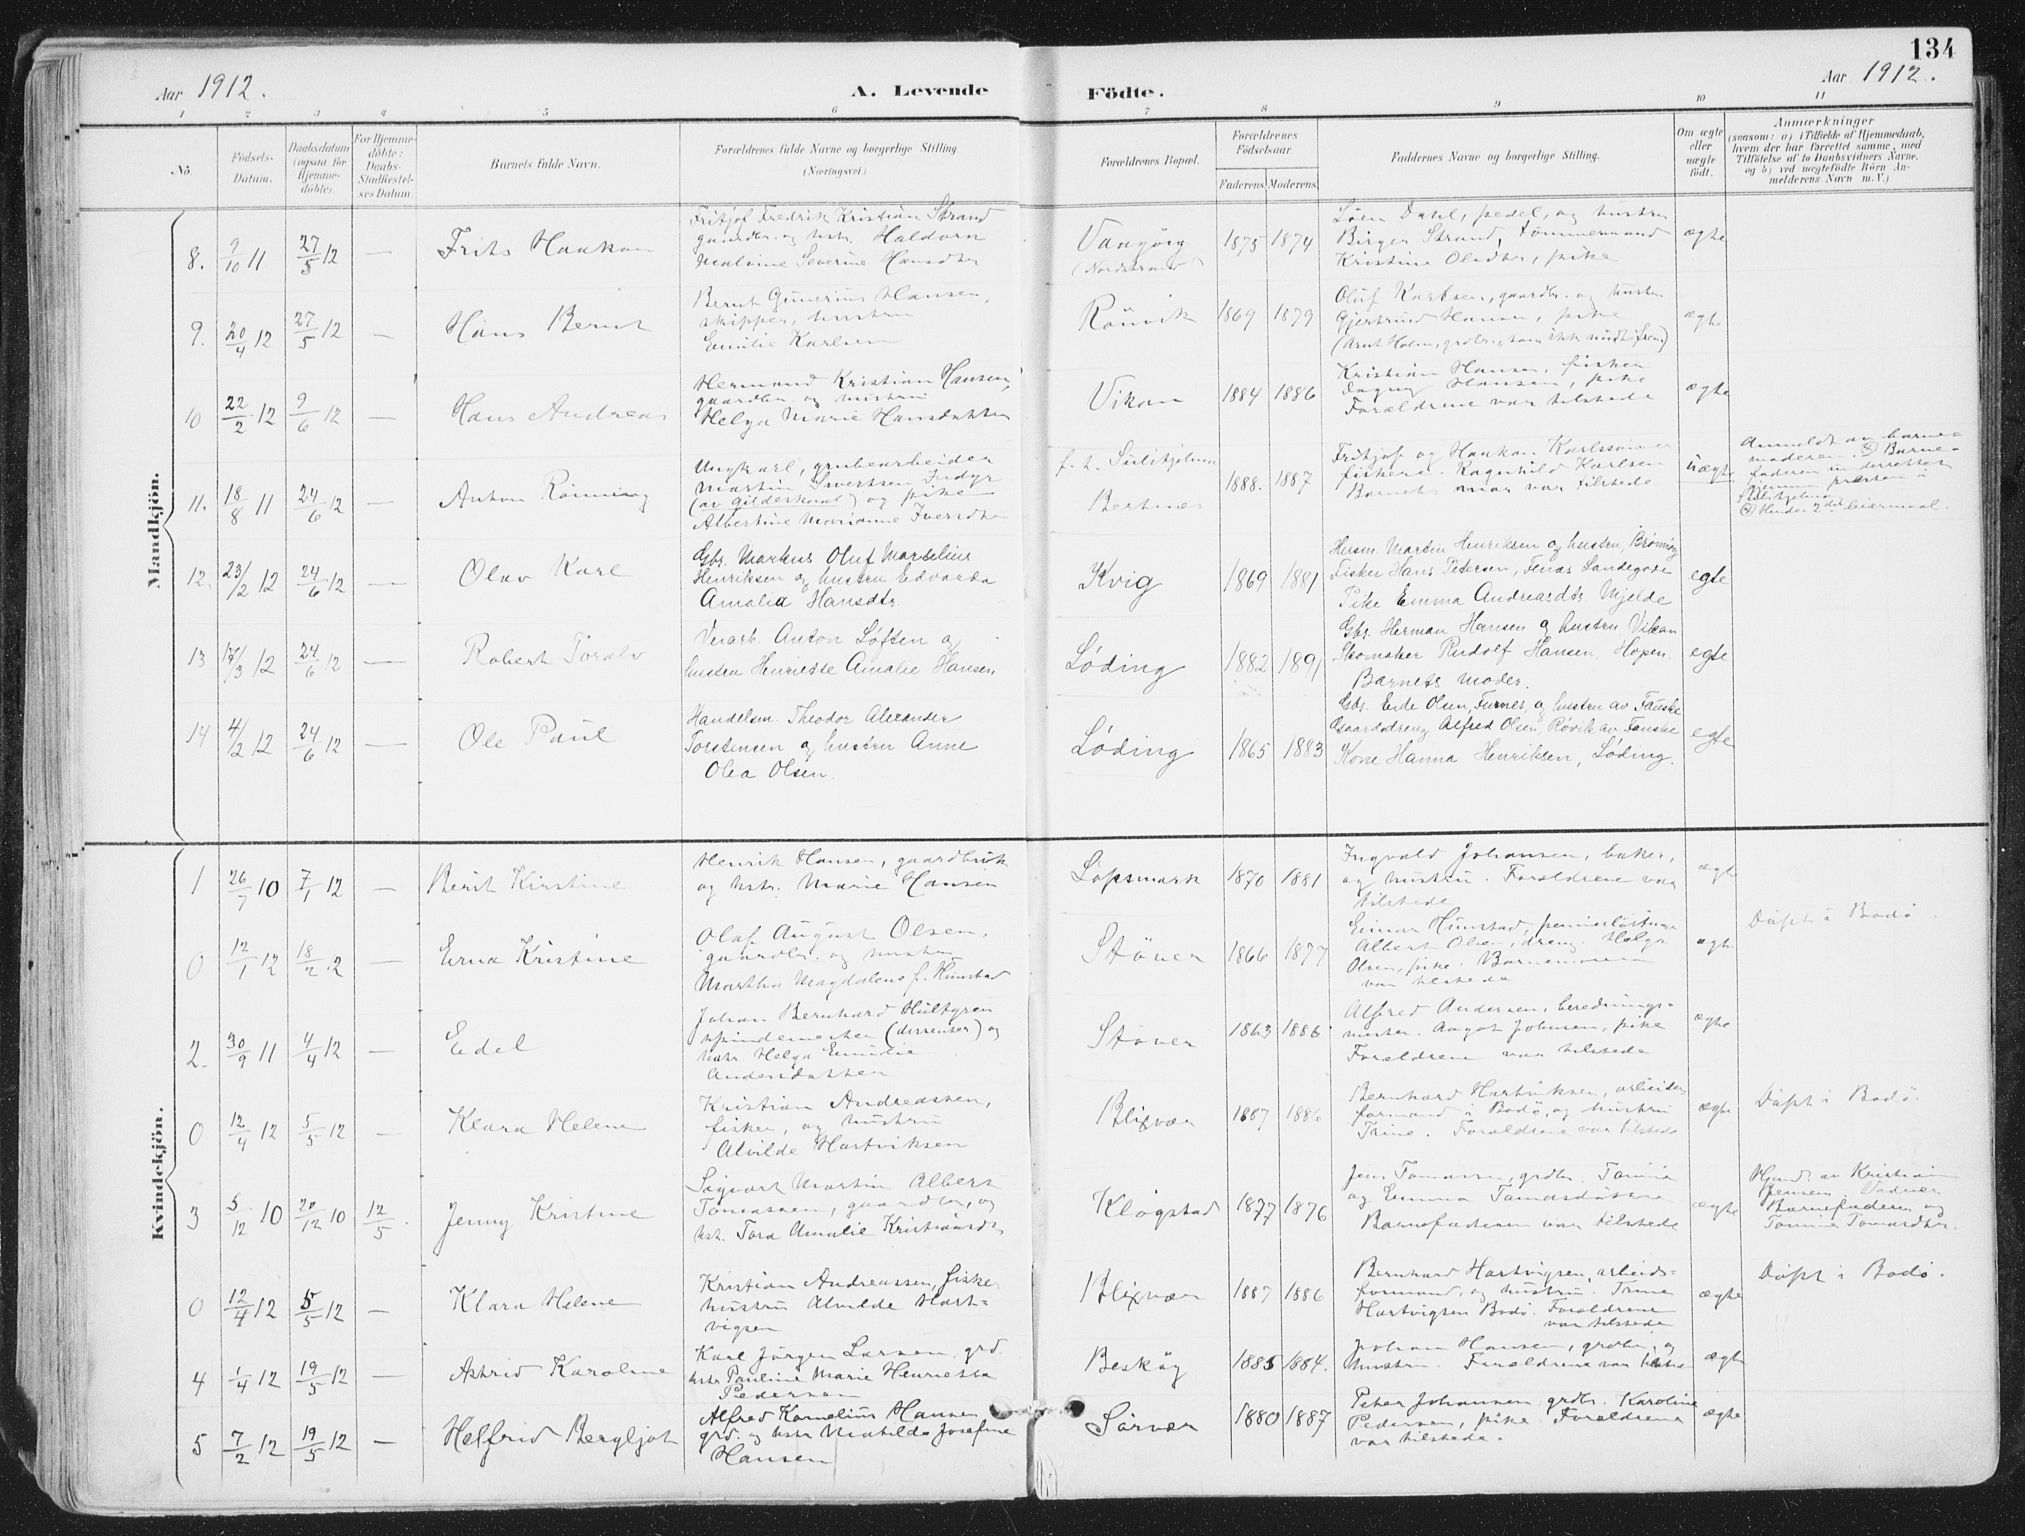 134
Aar 1912.
A. Levende
Födte.
Aar 1912.
1 2 3 4 5 6 7 8 9 10 11
No.
Födsels-
Datum.
Daabsdatum
(ogsaa for
Hjemme-
döbte).
For Hjemme-
döbte:
Daabs-
Stadfæstel-
ses Datum.
Barnets fulde Navn.
Forældrenes fulde Navne og borgerlige Stilling
(Næringsvei.)
Forældrenes Bopæl.
Forældrenes
Födselsaar.
Faderens. Moderens.
Faddernes Navne og borgerlige Stilling.
Om ægte
eller
uægte
födt.
Anmærkninger
(saasom: a) i Tilfælde af Hjemmedaab,
hvem der har forrettet samme, med
Tilföielse af to Daabsvidners Navne.
og b) ved uægtefödte Börn An-
melderens Navn m. V.)
Mandkjön.
8. 9/10 11 27/5 12 — Frits Haakon
Fritjof Fredrik Kristian Strand
gaardbr. og hstr. Haldora
Malvine Severine Hansdtr
(Nordstrand)
1875 1874
Sören Dahl, pedel, og hustru
Birger Strand, tömmermand
Kristine Olsdtr, pike
ægte
9. 20/4 12 27/5 12 — Hans Bernt
Bernt Gunerius Hansen,
skipper, hustru
Emilie Karlsen
Rönvik
1869 1879
Oluf Karlsen, gaardbr. og hustru
Gjertrud Hansen, pike
(Arnt Holm, grdbr., som ikke mödte frem)
ægte
10 22/2 12 9/6 12 — Hans Andreas
Hermand Kristian Hansen,
gaardbr. og hustru
Helga Marie Hansdatter
Vikan
1884 1886
Kristian Hansen, fisker
Dagny Hansen, pike
Forældrene var tilstede
ægte
11. 18/8 11 24/6 12 — Anton Rönning
Ungkarl, grubearbeider
Martin Sivertsen Indyr
(av Gildeskaal) og pike
Albertine Marianne Iversdtr
f. t. Sulitjelma
Bertnes
1888. 1887
Fritjof og Haakon Karlssönner
fiskere. Ragnhild Karlsen
Barnets mor var tilstede
uægte
Anmeldt av barne-
moderen. Barne-
faderen underrettet
gjennem presten i
Sulitjelma
Hendes 2det leiermaal.
12. 23/2 12 24/6 12 — Olav Karl
Gbr. Markus Oluf Marselius
Henriksen og hustru Edvarda
Amalia Hansdtr.
Kvig
1869 1881
Husm. Martin Henriksen og hustru, Bremnes
Fisker Hans Petersen, Fenes Landegode
Pike Emma Andreasdtr. Mjelde
egte
13 17/3 12 24/6 12 — Robert Toralv
Verarb. Anton Løften og
hustru Henriette Amalie Hansen.
Løding
1882 1891
Gbr. Herman Hansen og hustru, Vikan
Skomaker Rudolf Hansen, Hopen.
Barnets Moder.
egte
14 4/2 12 24/6 12 — Ole Paul
Handelsm. Theodor Alexander
Torstensen og hustru Anne
Olea Olsen.
Løding
1865 1883
Gbr. Eide Olsen, Furnes, og hustru av Fauske
Gaardsdreng Alfred Olsen, Røvik av Fauske
Kone Hanna Henriksen, Løding.
egte
Kvindekjön.
1 26/7 10 7/1 12 — Berit Kirstine
Henrik Hansen, gaardbruk
og hstr. Marie Hansen
Löpsmark
1870 1881
Ingvald Johansen, baker,
og hustru. Forældrene var
tilstede
ægte
0 12/1 12 18/2 12 Erna Kristine
Olaf August Olsen,
gaardbr. og hustru
Martha Magdalena f. Hunstad
Stöver
1866 1877
Einar Hunstad,
Albert Olsen, dreng. Helga
Olsen, pike. Barnemoren
var tilstede
ægte
Döpt i Bodö.
2. 30/9 11 4/4 12 — Edel
Johan Bernhard Hultgren
spindemester (disrenser) og
hstr Helga Emilie
Andersdatter
Stöver
1863 1886
Alfred Andersen, berednings-
mester. Aagot Johnsen, pike
Forældrene var tilstede
ægte
0 12/4 12 5/5 12 — Klara Helene
Kristian Andreassen,
fisker, og hustru
Alvilde Hartviksen
Blixvær
1887 1886
Bernhard Hartviksen, arbeider-
formand i Bodö, og hustru
Trine. Forældrene var tilstede
ægte
Döpt i Bodö.
3 5/12 10 20/12 10 12/5. Jenny Kristine
Sigvart Martin Albert
Tomassen, gaardbr, og
hst. Tora Amalie Kristiansdtr
Klögstad
1877 1876
Jens Tomassen, grdbr. Tomine
og Emma Tomasdatter
Barnefaderen var tilstede
ægte
Hjmd. av Kristian
Jensen. Vidner
Barnefaderen og
Tomine Tomasdtr.
0 12/4 12 5/5 12 — Klara Helene
Kristian Andreassen, fisker
hustru Alvilde Hart-
vigsen
Blixvær
1887 1886
Bernhard Hartvigsen, arbeids-
formand, og hustru. Trine
Hartvigsen Bodö. Forældrene
var tilstede
ægte
Döpt i Bodö.
4 1/4 12 19/5 12 — Astrid Karoline
Karl Jörgen Larsen, grd.
hstr Pauline Marie Henriette
Pedersen
Beskög
1885 1884.
Johan Hansen, grdbr, og
hustru. Forældrene var tilstede
ægte
5 7/2 12 19/5 12 — Helfrid Bergljot
Alfred Kornelius Hansen
grd. og hstr Matilde Josefine
Hansen
Sörvær
1880 1887
Peter Johansen grdbr. Karoline
Pedersen, pike. Forældrene
var tilstede.
ægte